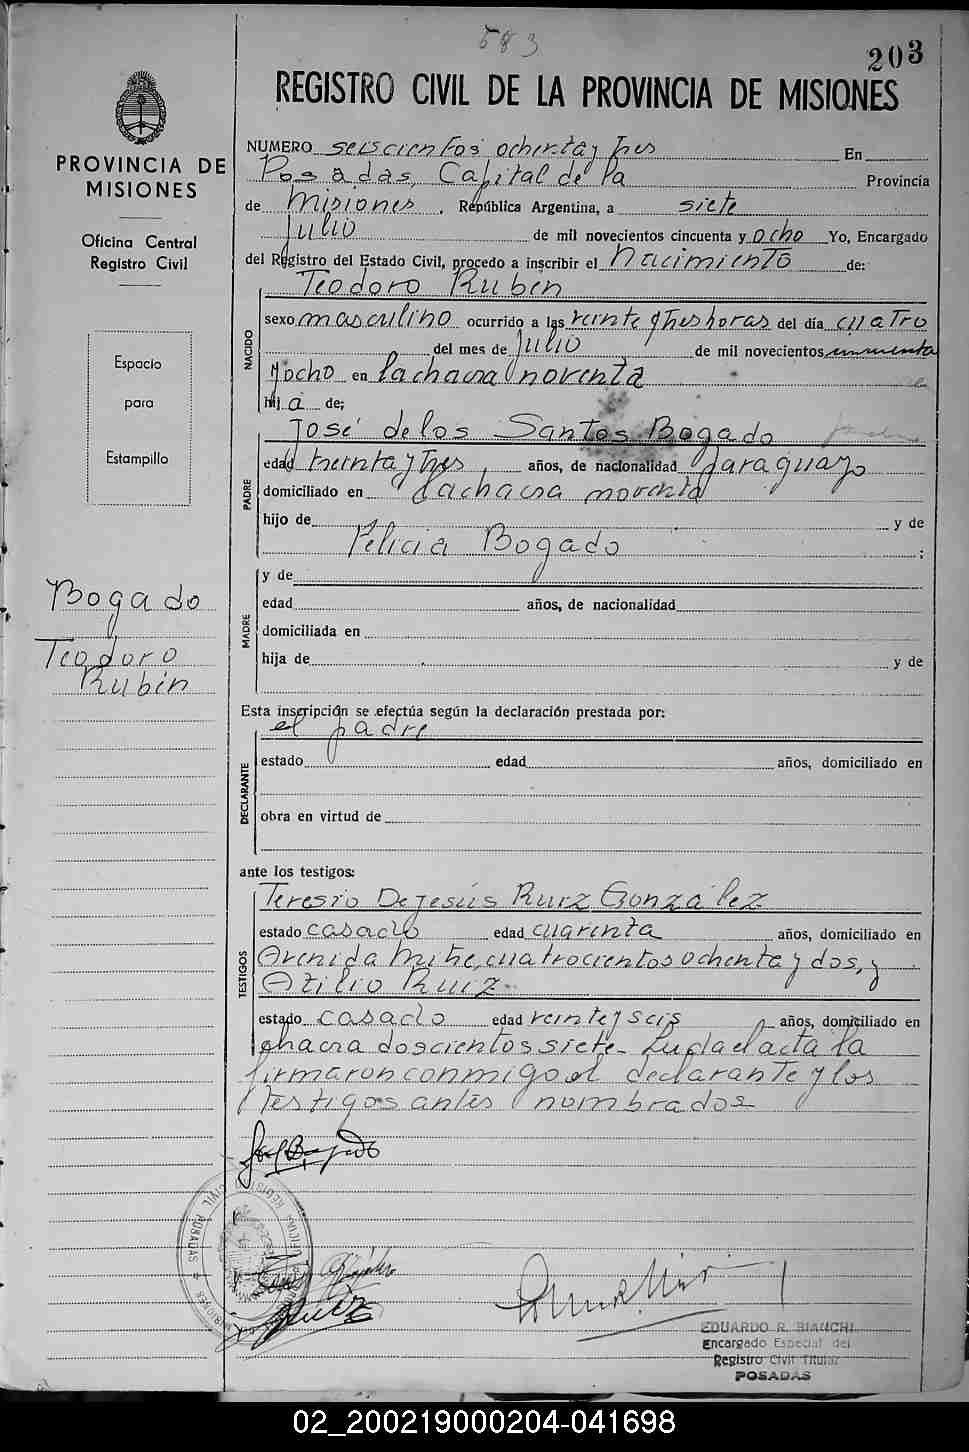 583
203
REGISTRO CIVIL DE LA PROVINCIA DE MISIONES
PROVINCIA DE
MISIONES
Oficina Central
Registro Civil
Espacio
para
Estampillo
Bogado
Teodoro
Rubén
NUMERO seiscientos ochenta y tres En
Posadas, Capital de la Provincia
de Misiones, República Argentina, a siete
Julio de mil novecientos cincuenta y ocho Yo, Encargado
del Registro del Estado Civil, procedo a inscribir el Nacimiento de:
NACIDO
Teodoro Rubén
sexo masculino ocurrido a las veinte y tres horas del día cuatro
del mes de Julio de mil novecientos cincuenta
y ocho en la chacra noventa
hij a de;
PADRE
José de los Santos Bogado
edad treinta y tres, años, de nacionalidad paraguayo
domiciliado en la chacra noventa
hijo de y de
Felicia Bogado ;
MADRE
y de
edad años, de nacionalidad
domiciliada en
hija de y de
Esta inscripción se efectúa según la declaración prestada por:
el padre
DECLARANTE
estado edad años, domiciliado en
obra en virtud de
ante los testigos:
TESTIGOS
Teresio De Jesús Ruiz González
estado casado edad cuarenta años, domiciliado en
Avenida Mitre, cuatrocientos ochenta y dos, y
Atilio Ruiz
estado casado edad veinte y seis años, domiciliado en
chacra doscientos siete. Leida el acta la
firmaron conmigo el declarante y los
testigos antes nombrados
REGISTRO CIVIL POSADAS
MISIONES
Ruiz
EDUARDO R. BIANCHI
Encargado Especial del
Registro Civil Titular
POSADAS
02_200219000204-041698